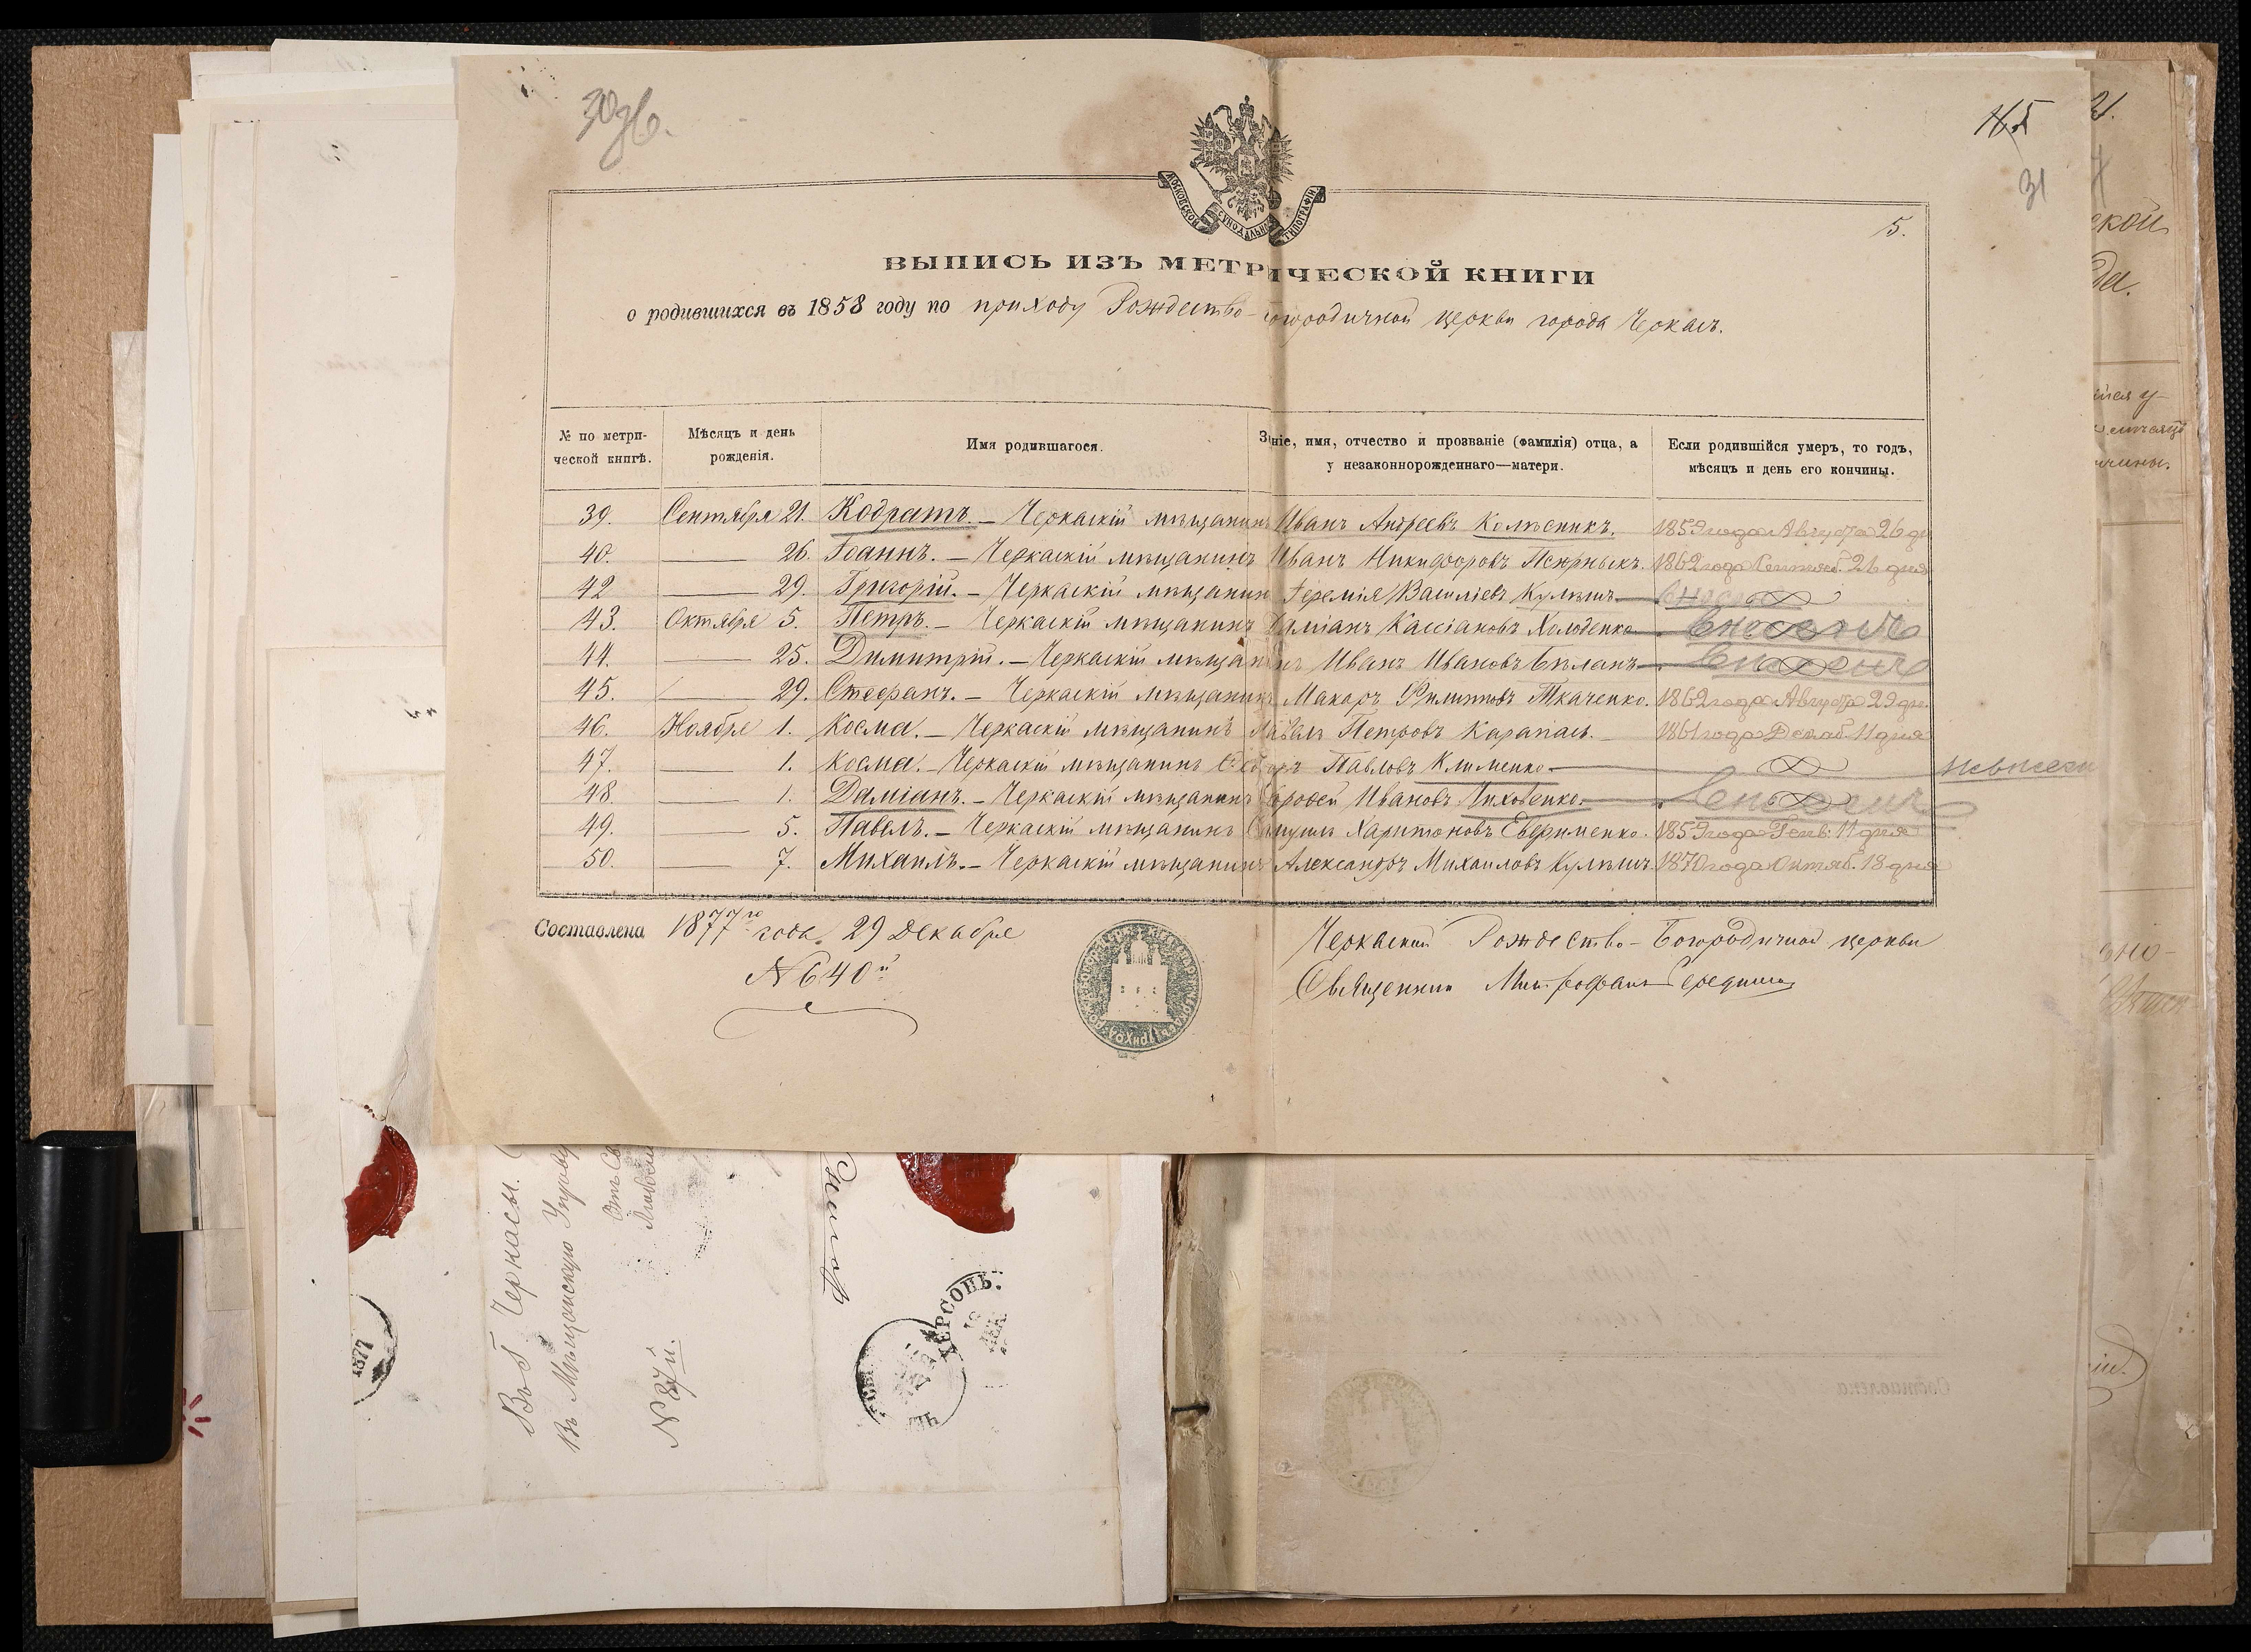 30 об.
31
5.
МОСКОВСКОЙ СУНОДАЛЬНОЙ ТИПОГРАФІИ
ВЫПИСЬ ИЗЪ МЕТРИЧЕСКОЙ КНИГИ
о родившихся въ 1858 году по приходу Рождество-Богородичной церкви города Черкасъ.
№ по метри-
ческой книгѣ.
Мѣсяцъ и день
рожденія.
Имя родившагося.
Званіе, имя, отчество и прозваніе (фамилія) отца, а
у незаконнорожденнаго—матери.
Если родившійся умеръ, то годъ,
мѣсяцъ и день его кончины.
39. Сентября 21. Кодратъ. – Черкаскій мѣщанинъ Иванъ Андреевъ Колѣсникъ. 1859 года Августа 26 дн
40. — 26. Іоаннъ. – Черкаскій мѣщанинъ Иванъ Никифоровъ 1862 года Сентяб. 26 дня
42 — 29. Григорій. – Черкаскій мѣщанинъ Іеремія Василіевъ Кулѣшъ —
43. Октября 5. Петръ. – Черкаскій мѣщанинъ Даміанъ Кассіановъ Холоденко — внесенъ
44. — 25. Димитрій. – Черкаскій мѣщанинъ Иванъ Ивановъ Биланъ — внесенъ
45. — 29. Стефанъ. – Черкаскій мѣщанинъ Макаръ Филиповъ Ткаченко. 1862 года Августа 29 дн.
46. Ноября 1. Косма. – Черкаскій мѣщанинъ Павелъ Петровъ Карапасъ. – 1861 года Декаб. 11 дня
47. — 1. Косма. – Черкаскій мѣщанинъ Павловъ Клименко — невнесен
48. — 1. Даміанъ. – Черкаскій мѣщанинъ Ивановъ Лиховенко. — внесенъ
49. — 5. Павелъ. – Черкаскій мѣщанинъ Самуилъ Харитоновъ Евфименко. 1859 года Генв: 11 дня
50. — 7. Михаилъ. – Черкаскій мѣщанинъ Александръ Михаиловъ Кулѣшъ. 1870 года Октяб. 18 дня
Составлена 1877го года. 29 Декабря
N 640й
Черкаской Рождество-Богородичной церкви
Священник Митрофанъ Середина
Въ г. Черкасы.
Въ Мѣщанскую Управу
N 87й.
1877
ХЕРСОНЪ.